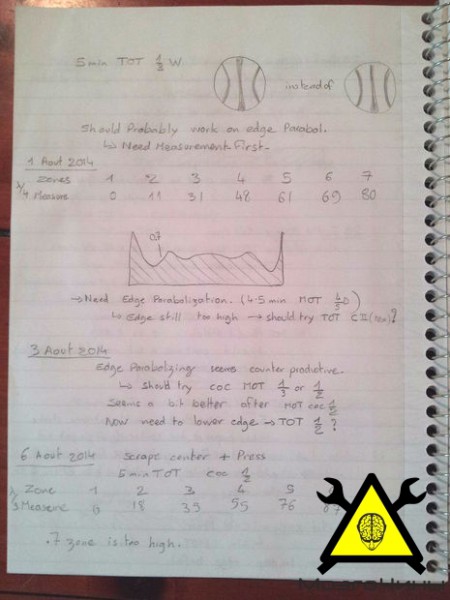 5 min TOT 1/3 W
instead of
Should Probably work on edge Parabol.
↳ Need Measurement First-
1 Aout 2014
Zones 1 2 3 4 5 6 7
Measure 0 11 31 48 61 69 80
0.7
→ Need Edge Parabolization. (4-5 min MOT 4/5 D)
↳ Edge still too high → should try TOT
3 Aout 2014
Edge Parabolzing seems counter productive.
↳ should try COC MOT 1/3 or 1/2
Seems a bit better after MOT COC 1/2
Now need to lower edge → TOT 1/2 ?
6 Aout 2014 scrape center + Press
5 min TOT COC 1/2
Zone 1 2 3 4 5
Measure 18 35 55 76
.7 zone is too high.